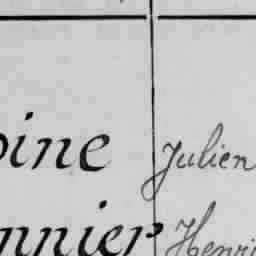 oine Julien
nnier Henri